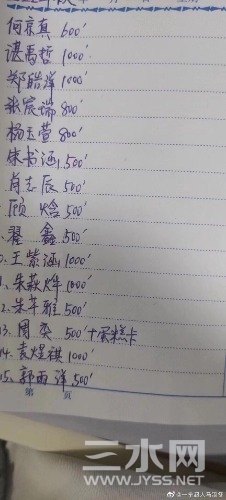 何京真 600'
谌禹哲 1000'
郑皓洋 1000'
张宸瑞 800'
杨玉萱 800'
朱书涵 500'
肖志辰 500'
顾焓 500'
翟鑫 500'
0.王紫涵 1000'
1、朱萩烨 1000'
2.朱芊雅 500'
13.周奕 500'+蛋糕卡
14.袁煜祺 1000'
15、郭雨泽 500'
第 页
三水网
WWW.JYSS.NET